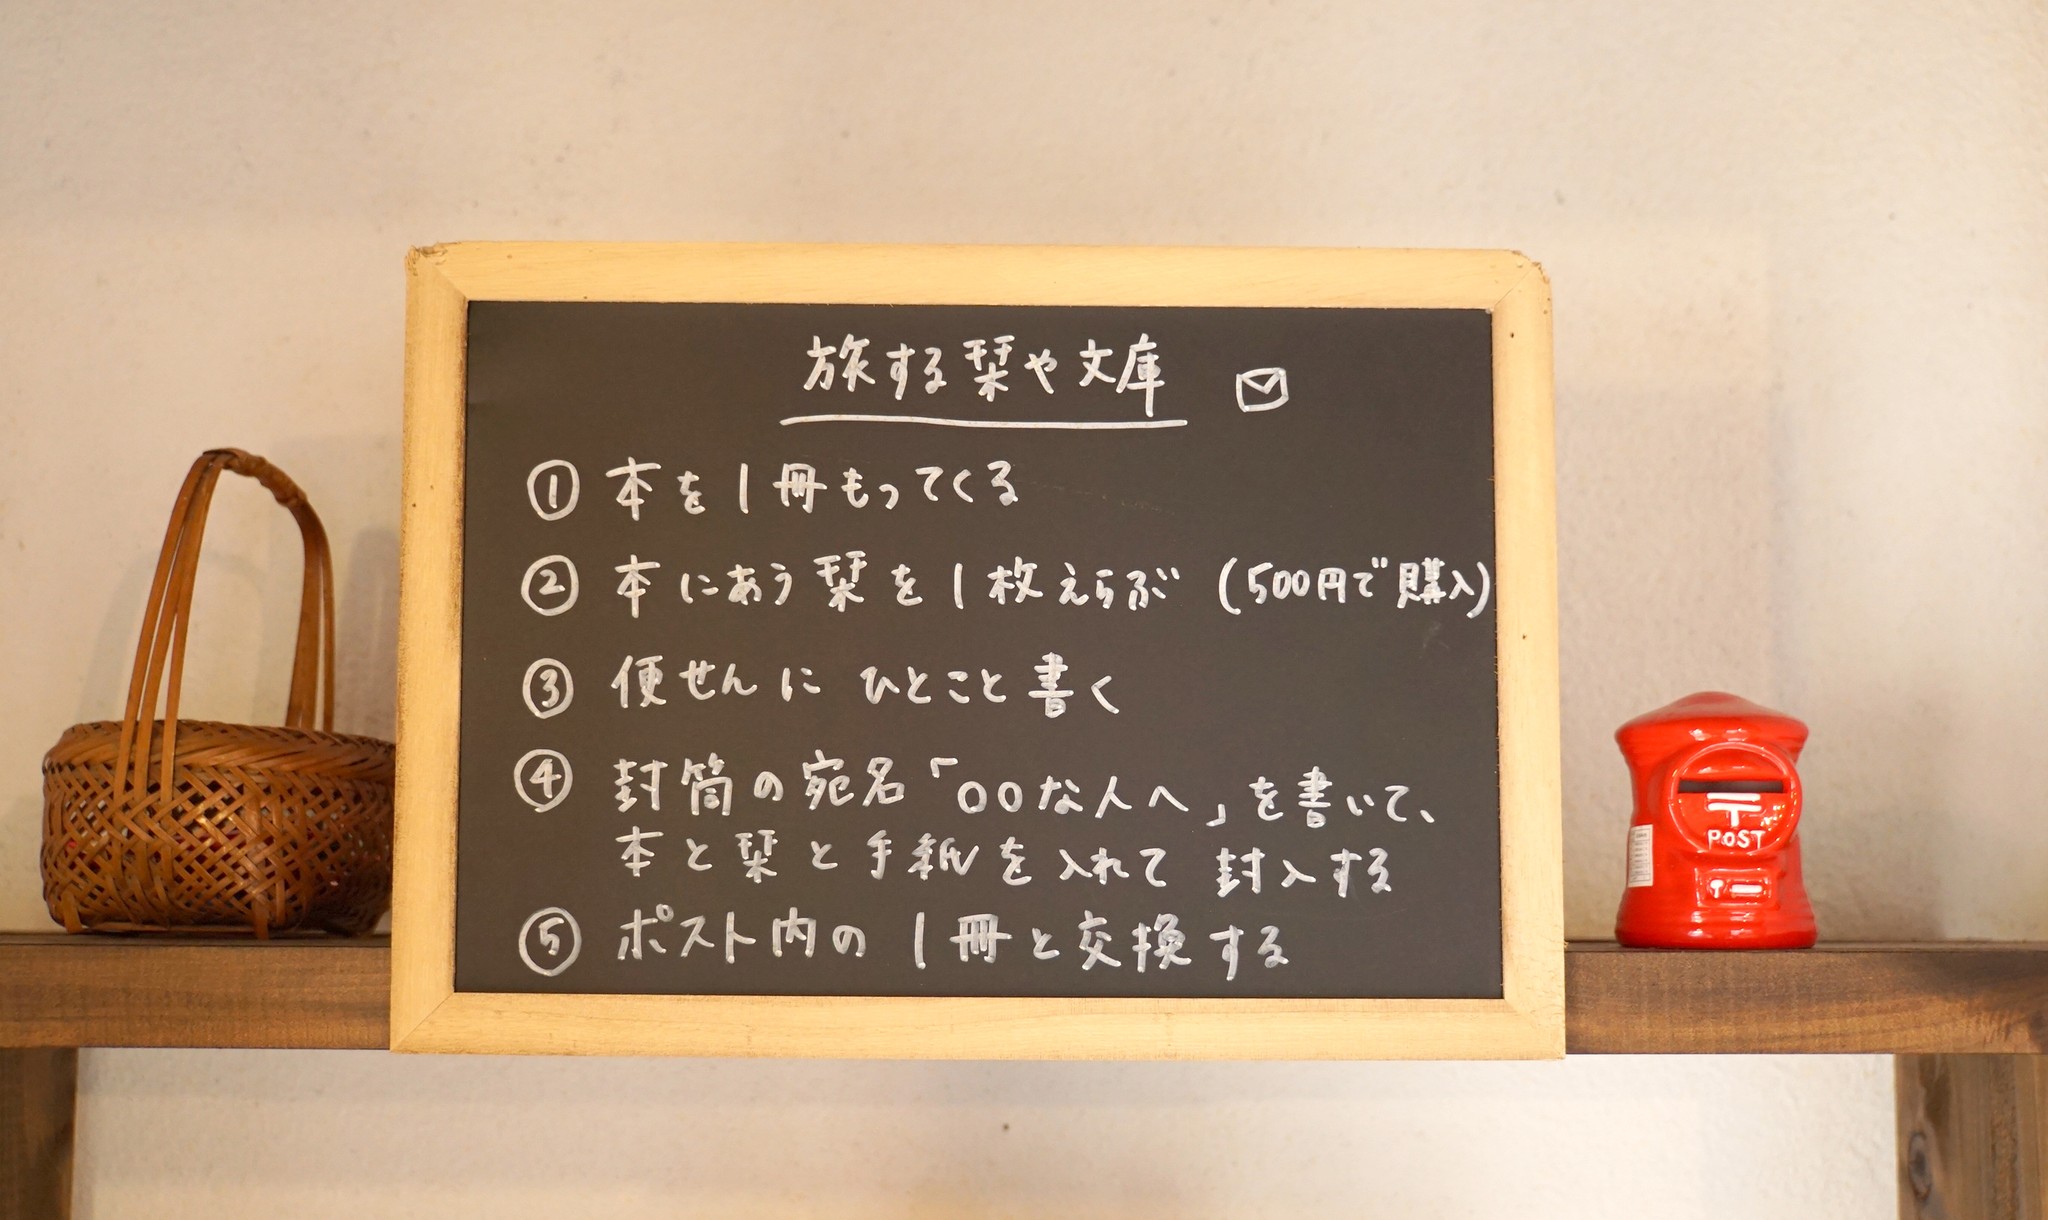 旅する栞や文庫
① 本を1冊もってくる
② 本にあう栞を1枚えらぶ (500円で購入)
③ 便せんに ひとこと書く
④ 封筒の宛名「○○な人へ」を書いて、
本と栞と手紙を入れて 封入する
⑤ ポスト内の 1冊と交換する
〒
POST